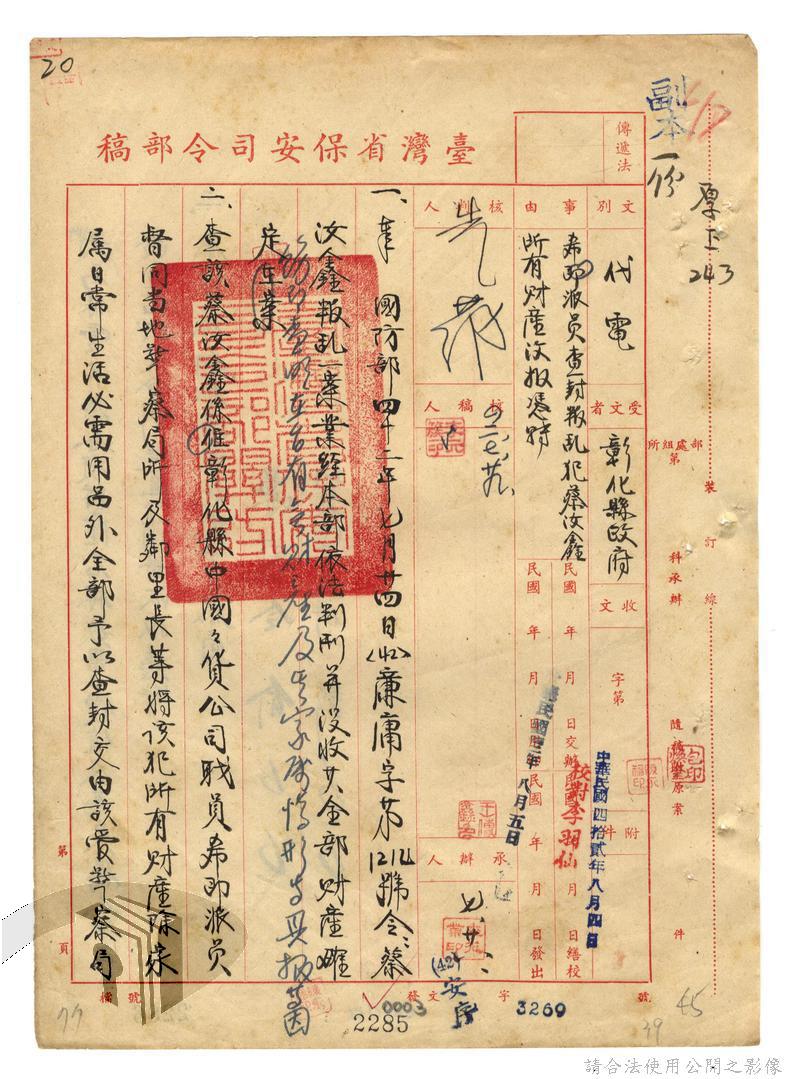 20
副本一份
厚上
243
臺灣省保安司令部稿
傳遞法
文別
代電
受文者
彰化縣政府
收文
字第
附件
事由
希即派員查封叛乱犯蔡汝鑫
所有財產汝报憑轉
民國 年 月 日交辦
民國 年 月 日繕校
民國 年 月 日發出
中華民國四拾貳年八月四日
校對李羽仙
八月五日
核判人
核稿人
承辦人
部處組所
第 科承辦
隨 原案
件
裝訂線
一、奉 國防部四十二年七月廿四日(42)廉庸字第1212號令:蔡
汝鑫叛乱一案業經本部依法判刑并沒收其全部財產確
定在案
二、查該蔡汝鑫係住彰化縣中國々貨公司職員希即派員
督同當地警察局所及鄰里長等將該犯所有財產除家
属日常生活必需用品外全部予以查封交由該管警察局
第 頁
檔號
發文 字 號
(42)安
3269
0003
2285
77
39
45
請合法使用公開之影像